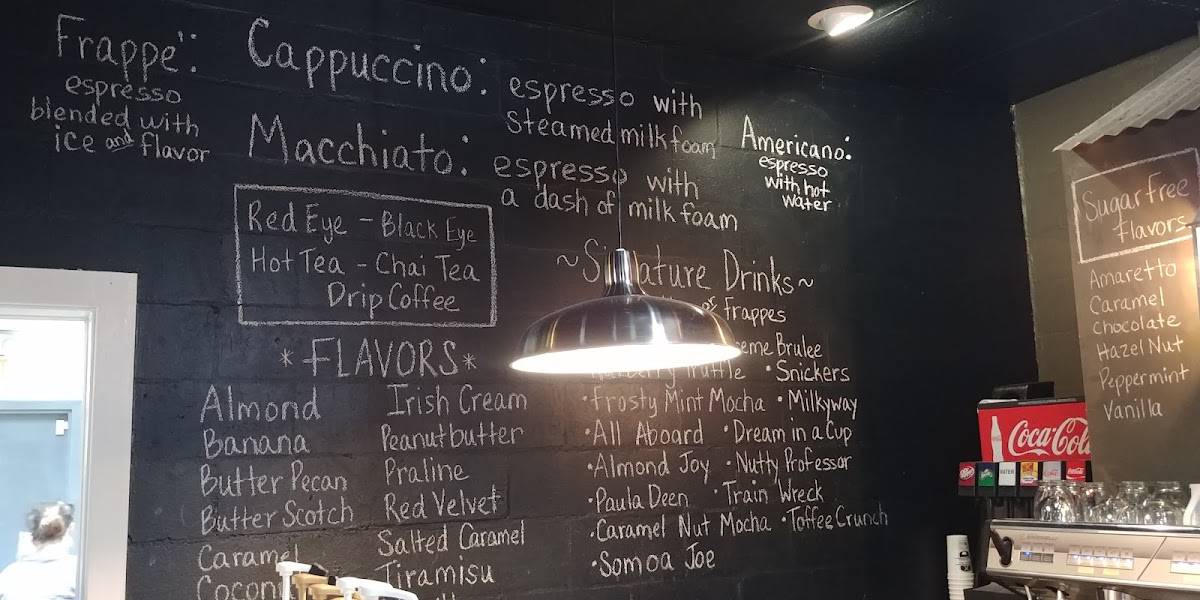 Frappé:
espresso
blended with
ice and flavor
Cappuccino: espresso with
steamed milk foam
Macchiato: espresso with
a dash of milk foam
Americano:
espresso
with hot
water
Red Eye - Black Eye
Hot Tea - Chai Tea
Drip Coffee
~ Drinks~
or Frappes
Brulee
• Snickers
• Frosty Mint Mocha • Milkyway
• All Aboard • Dream in a Cup
• Almond Joy • Nutty Professor
• Paula Deen • Train Wreck
• Caramel Nut Mocha • Toffee Crunch
• Somoa Joe
*FLAVORS*
Almond
Banana
Butter Pecan
Butter Scotch
Caramel
Irish Cream
Peanutbutter
Praline
Red Velvet
Salted Caramel
Tiramisu
Sugar Free
Flavors
Amaretto
Caramel
Chocolate
Hazel Nut
Peppermint
Vanilla
Coca-Cola